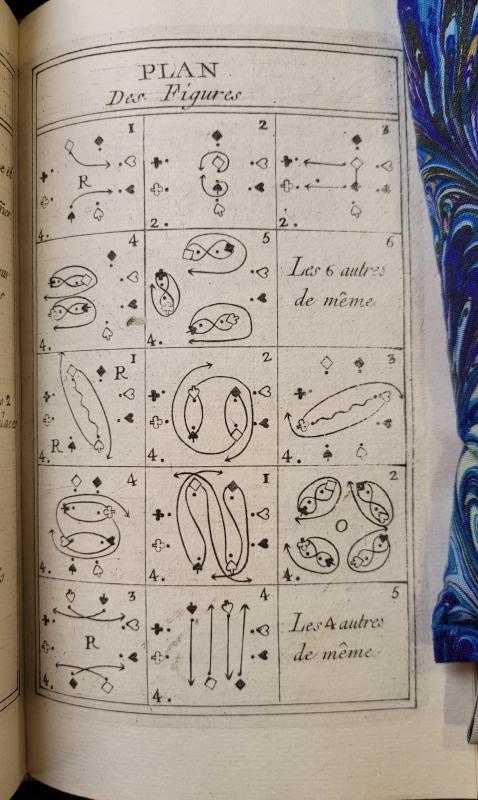 PLAN
Des Figures
1
R
4.
2
2.
3
2.
4
4.
5
4.
6
Les 6 autres
de même
1
R
R
4.
2
4.
3
4.
4
4.
1
4.
2
O
4.
3
R
4.
4
4.
5
Les 4 autres
de même